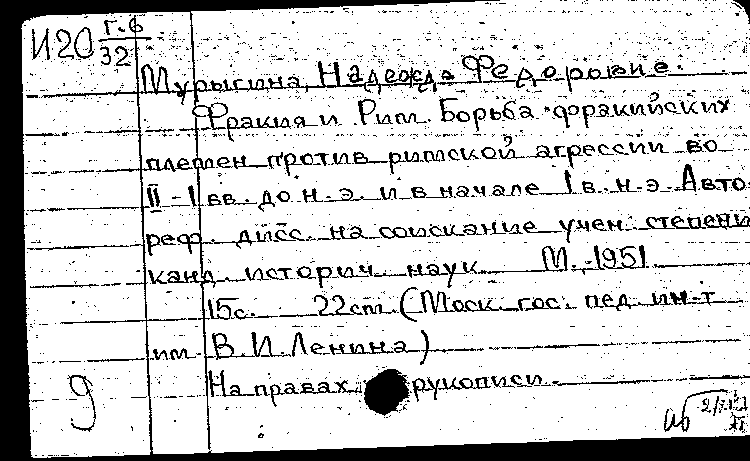 И20 Г.6
32
Мурыгина, Надежда Федоровна.
Фракия и Рим. Борьба фракийских
племен против римской агрессии во
II-I вв. до н.э. и в начале I в. н.э. Авто
реф. дисс. на соискание учен. степени
канд. историч. наук М., 1951
15с. 22см (Моск. гос. пед. ин-т
им. В.И. Ленина)
На правах рукописи.
9